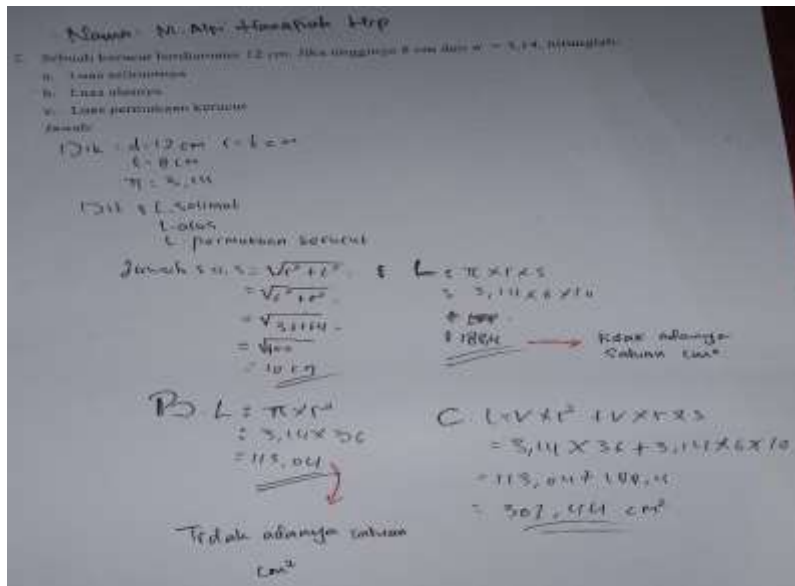 Nama: M. Alpi Hanapiah Hrp
2. Sebuah kerucut berdiameter 12 cm. Jika tingginya 8 cm dan π = 3,14, hitunglah:
a. Luas selimutnya
b. Luas alasnya
c. Luas permukaan kerucut
Jawab:
Dik : d = 12 cm r = 6 cm
t = 8 cm
π = 3,14
Dit : L. Selimut
L. alas
L. permukaan kerucut
Jawab : a. s = √r² + t²
= √6² + 8²
= √36+64
= √100
= 10 cm
L = π × r × s
= 3,14 × 6 × 10
= 188,4
Tidak adanya
Satuan cm²
B. L = π × r²
= 3,14 × 36
= 113,04
Tidak adanya satuan
cm²
C. L = π × r² + π × r × s
= 3,14 × 36 + 3,14 × 6 × 10
= 113,04 + 188,4
= 301,44 cm²